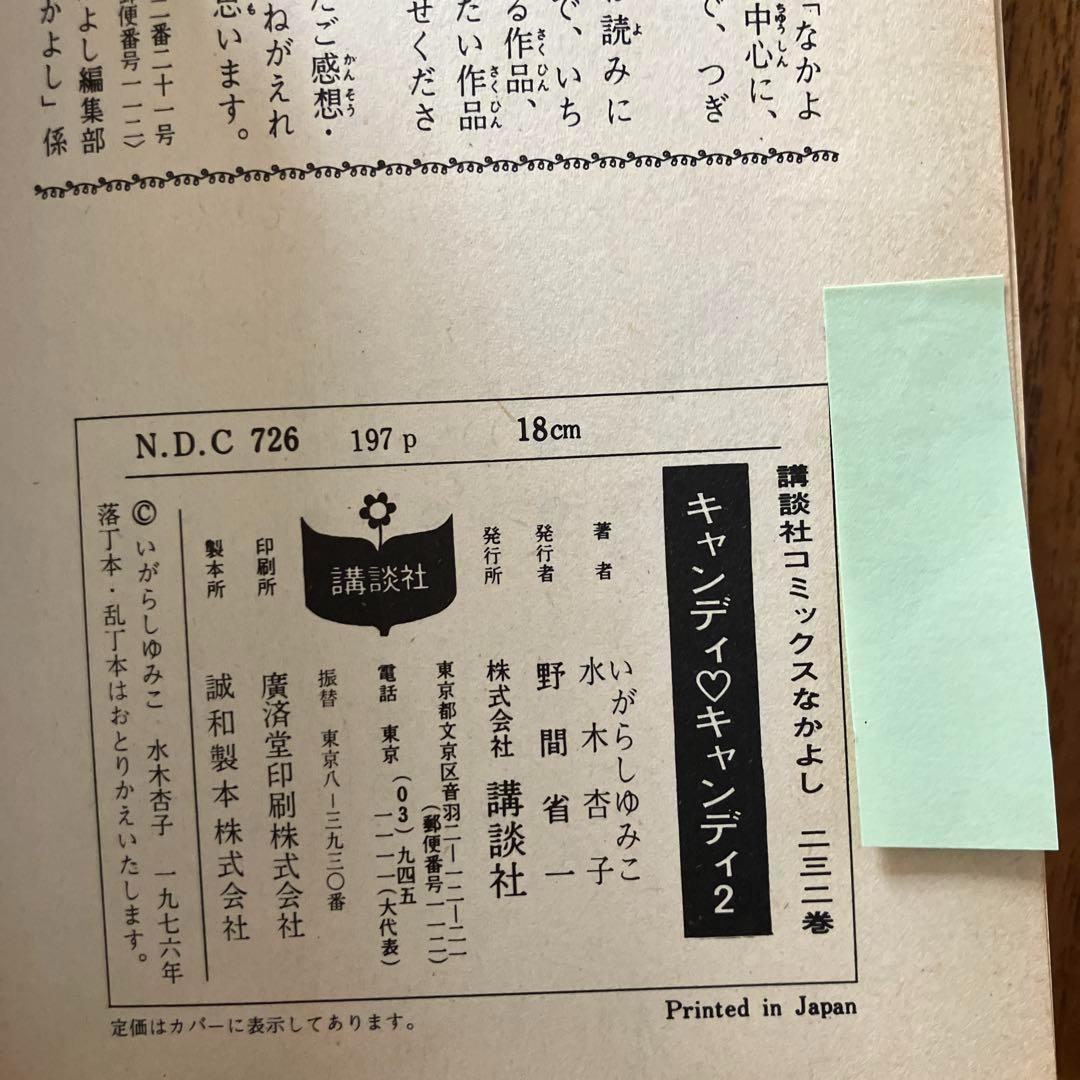 「なかよ
中心に、
で、つぎ
読みに
で、いち
る作品、
たい作品
せくださ
たご感想・
ねがえれ
思います。
二番二十一号
郵便番号一一二）
よし編集部
かよし」係
N.D.C 726 197p 18cm
講談社コミックスなかよし 二三二巻
キャンディ♡キャンディ2
著者 いがらしゆみこ
水木杏子
発行者 野間省一
発行所 株式会社 講談社
東京都文京区音羽二―一二―二一
（郵便番号一一二）
電話 東京（03）九四五
一一一一（大代表）
振替 東京八―三九三〇番
講談社
印刷所 廣済堂印刷株式会社
製本所 誠和製本株式会社
©いがらしゆみこ 水木杏子 一九七六年
落丁本・乱丁本はおとりかえいたします。
定価はカバーに表示してあります。
Printed in Japan